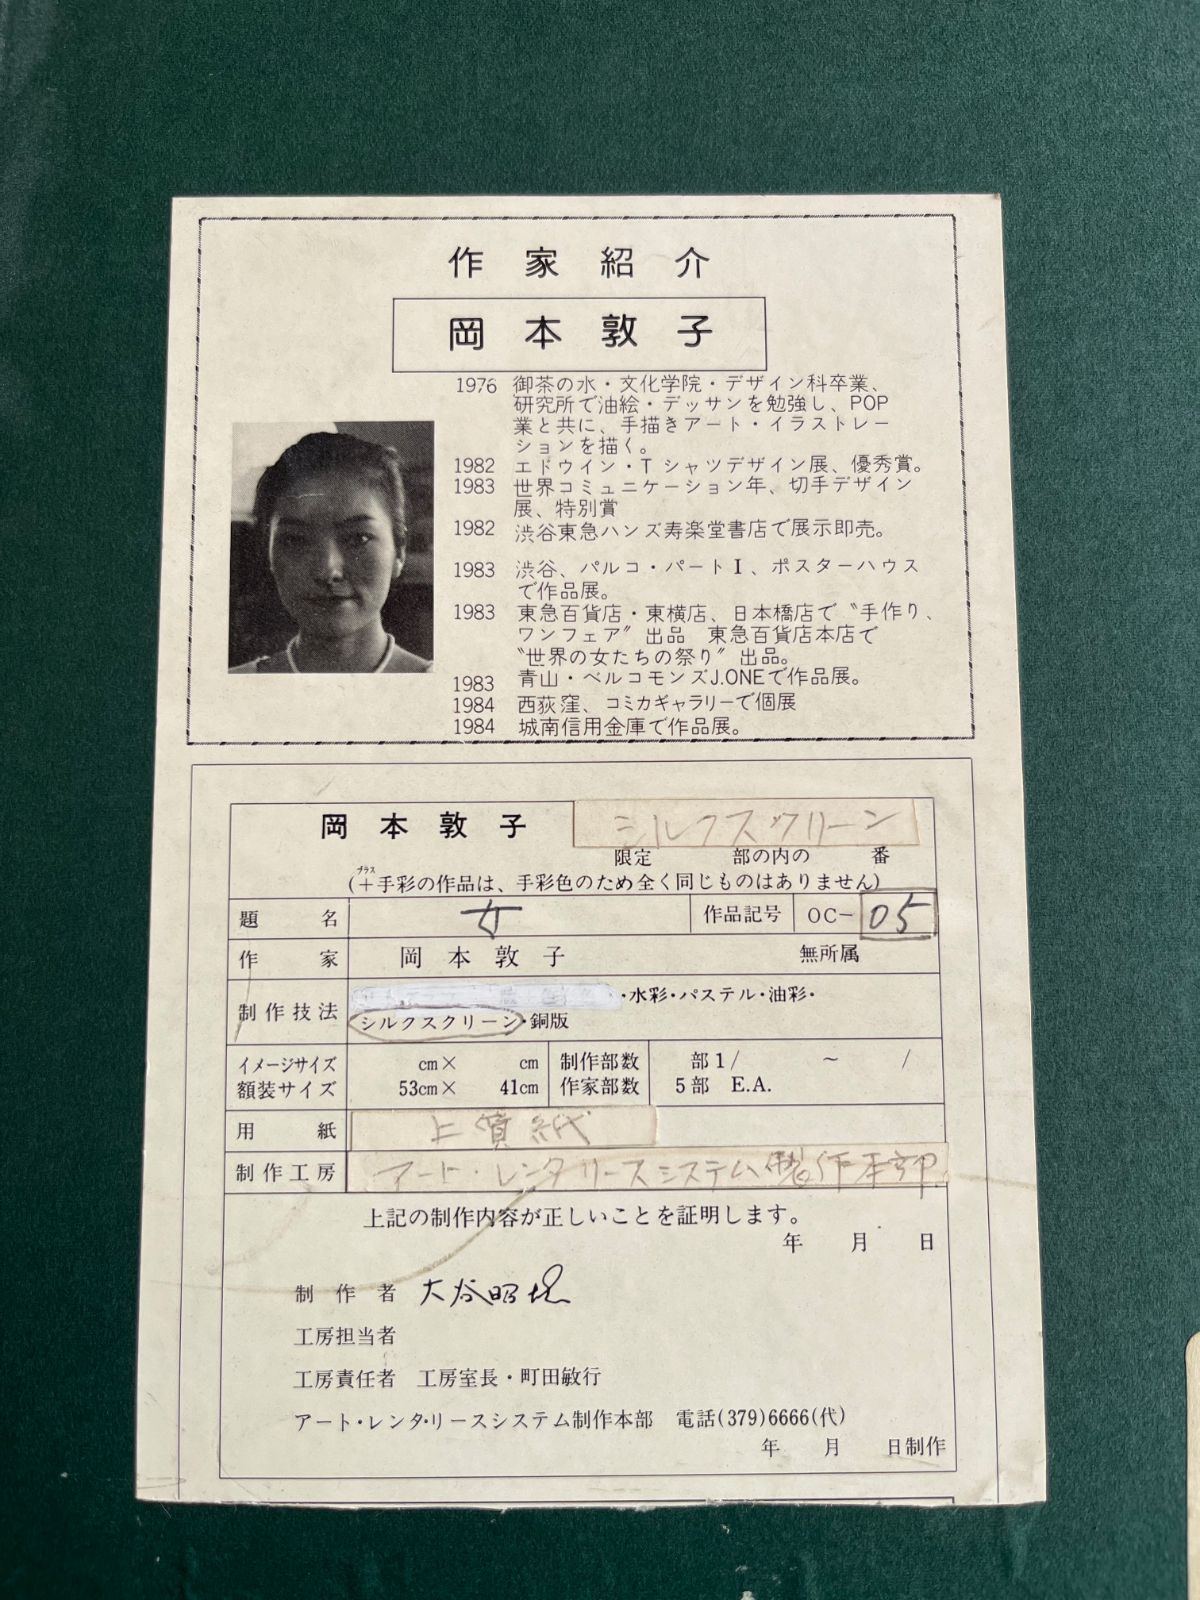 作家紹介
岡本敦子
1976 御茶の水・文化学院・デザイン科卒業、
研究所で油絵・デッサンを勉強し、POP
業と共に、手描きアート・イラストレー
ションを描く。
1982 エドウイン・Tシャツデザイン展、優秀賞。
1983 世界コミュニケーション年、切手デザイン
展、特別賞
1982 渋谷東急ハンズ寿楽堂書店で展示即売。
1983 渋谷、パルコ・パートI、ポスターハウス
で作品展。
1983 東急百貨店・東横店、日本橋店で〝手作り、
ワンフェア〞出品 東急百貨店本店で
〝世界の女たちの祭り〞出品。
1983 青山・ベルコモンズJ.ONEで作品展。
1984 西荻窪、コミカギャラリーで個展
1984 城南信用金庫で作品展。
岡本敦子 シルクスクリーン
限定 部の内の 番
プラス
(+手彩の作品は、手彩色のため全く同じものはありません)
題名 女 作品記号 OC- 05
作家 岡本敦子 無所属
制作技法 ・水彩・パステル・油彩・
シルクスクリーン・銅版
イメージサイズ cm× cm 制作部数 部1/ ~ /
額装サイズ 53cm× 41cm 作家部数 5部 E.A.
用紙 上質紙
制作工房 アート・レンタリースシステム製作本部
上記の制作内容が正しいことを証明します。
年 月 日
制作者 大谷昭
工房担当者
工房責任者 工房室長・町田敏行
アート・レンタ・リースシステム制作本部 電話(379)6666(代)
年 月 日制作